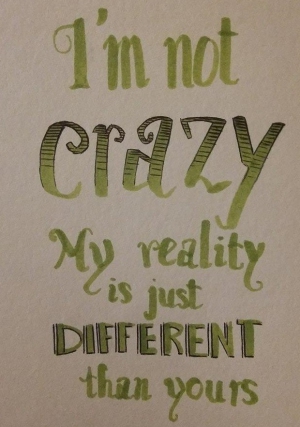 I'm not
crazy
My reality
is just
DIFFERENT
than yours